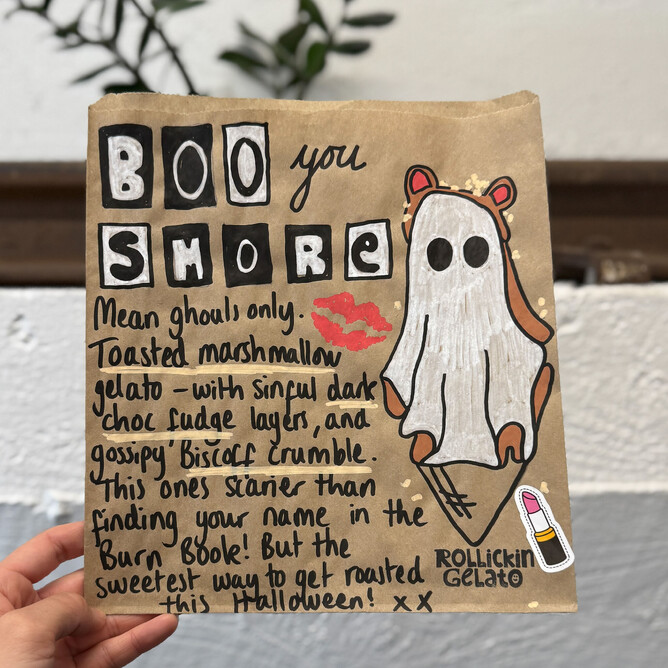 BOO you
SMORE
Mean ghouls only.
Toasted marshmallow
gelato - with sinful dark
choc fudge layers, and
gossipy Biscoff crumble.
This ones scarier than
finding your name in the
Burn Book! But the
sweetest way to get roasted
this Halloween! x x
ROLLICKIN
GELATO